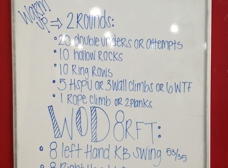 Warm up → 2 Rounds:
• 20 double unders or attempts
• 10 hollow Rocks
• 10 Ring Rows
• 5 HSPU or 3 wall climbs or 16 WTF
• 1 Rope climb or 2 planks
WOD 8RFT:
• 8 left Hand KB Swing 53/35